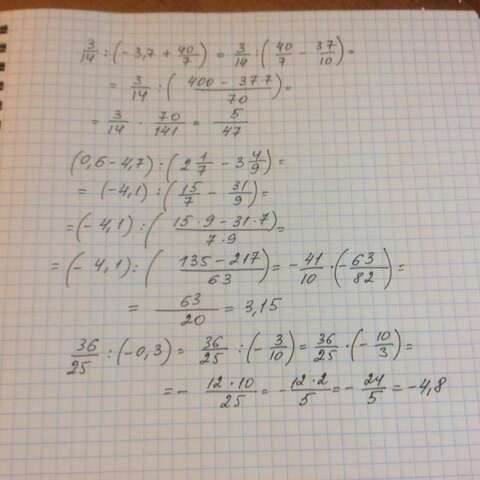 3/14 : (-3,7 + 40/7) = 3/14 : (40/7 - 37/10) =
= 3/14 : ((400 - 37·7)/70) =
= 3/14 · 70/141 = 5/47
(0,6 - 4,7) : (2 1/7 - 3 4/9) =
= (-4,1) : (15/7 - 31/9) =
= (-4,1) : ((15·9 - 31·7)/(7·9)) =
= (-4,1) : ((135 - 217)/63) = -41/10 · (-63/82) =
= 63/20 = 3,15
36/25 : (-0,3) = 36/25 : (-3/10) = 36/25 · (-10/3) =
= - (12·10)/25 = - (12·2)/5 = - 24/5 = -4,8